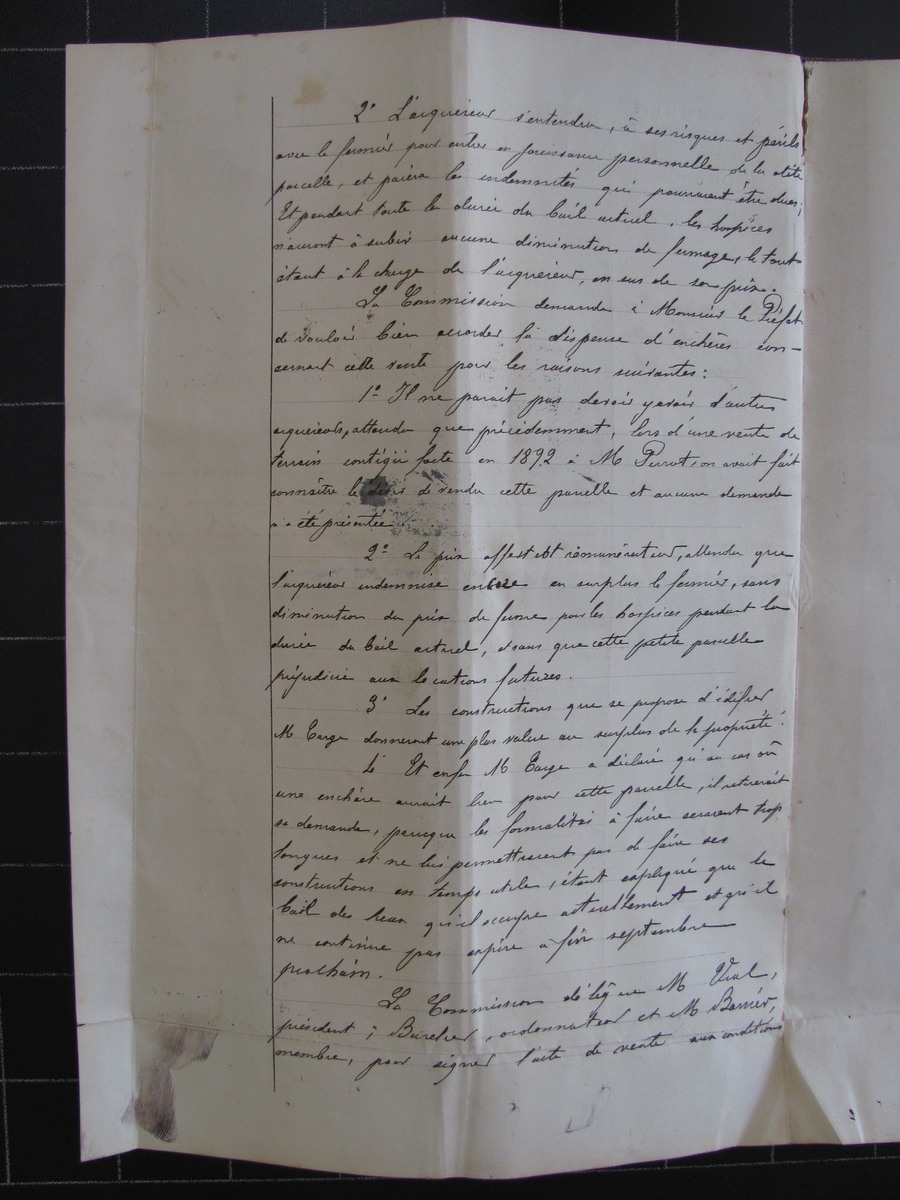 2° L'acquéreur s'entendra, à ses risques et périls
avec le fermier pour entrer en jouissance personnelle de la dite
parcelle, et paiera les indemnités qui pourraient être dues;
Et pendant toute la durée du bail actuel, les hospices
n'auront à subir aucune diminution de fermage, le tout
étant à la charge de l'acquéreur, en sus de son prix.
La Commission demande à Monsieur le Préfet
de vouloir bien accorder la dispense d'enchères con-
cernant cette vente pour les raisons suivantes:
1° Il ne parait pas devoir y avoir d'autres
acquéreurs, attendu que précédemment, lors d'une vente de
terrain contigü faite en 1892 à M Perrot, on avait fait
connaître le désir de vendre cette parcelle et aucune demande
n'a été présentée.
2° Le prix offert est rémunérateur, attendu que
l'acquéreur indemnise encore en surplus le fermier, sans
diminution du prix de ferme pour les hospices pendant la
durée du bail actuel, et sans que cette petite parcelle
préjudicie aux locations futures.
3° Les constructions que se propose d'édifier
M Targe donneront une plus value au surplus de la propriété.
4° Et enfin M Targe a déclaré qu'au cas où
une enchère aurait lieu pour cette parcelle, il retirerait
sa demande, parceque les formalités à faire seraient trop
longues et ne lui permettraient pas de faire ses
constructions en temps utile, étant expliqué que le
bail des lieux qu'il occupe actuellement et qu'il
ne continue pas expire à fin septembre
prochain.
La Commission délègue M Vial,
président, Burelier, ordonnateur et M Barrier,
membre, pour signer l'acte de vente aux conditions